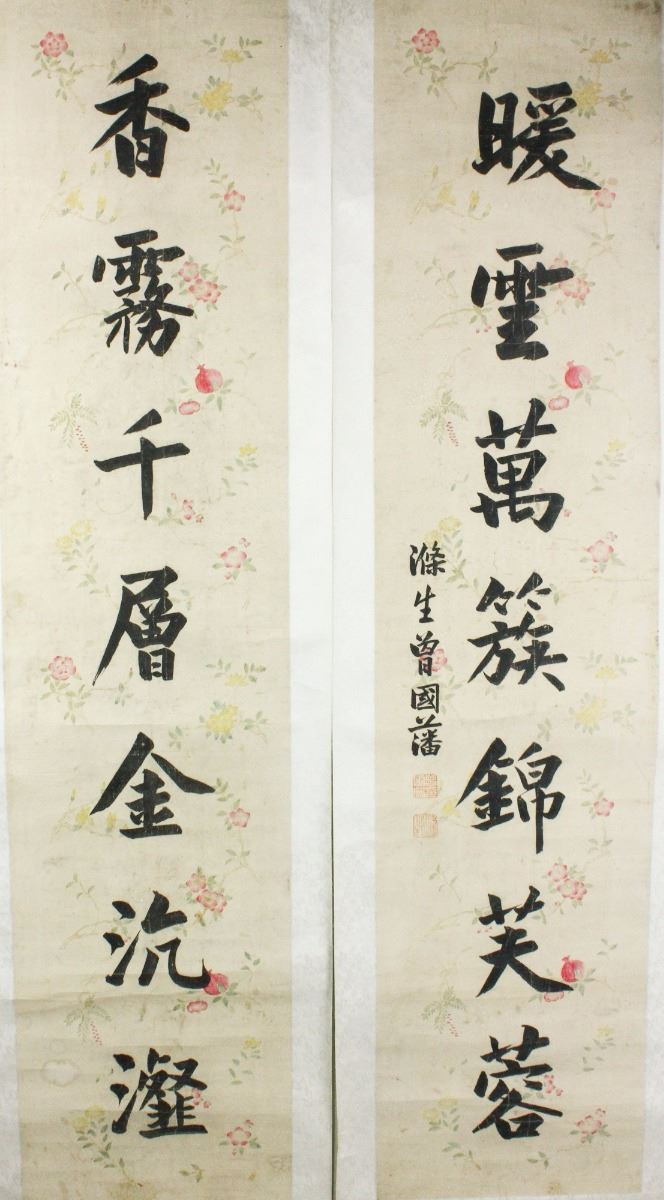 暖雲萬簇錦芙蓉
滌生曾國藩
香霧千層金沆瀣